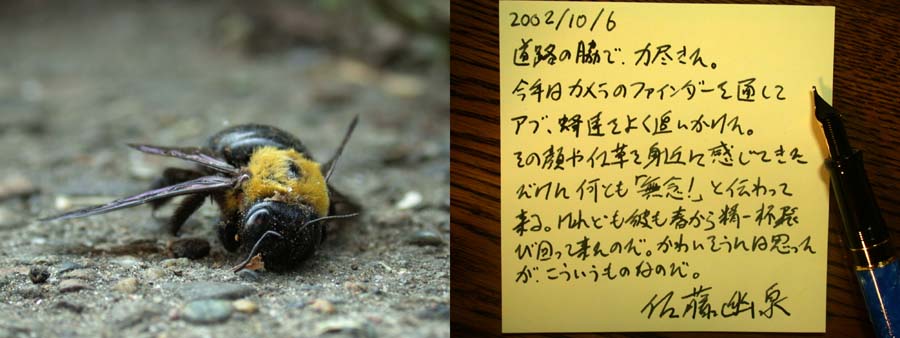 2002/10/6
道路の脇で、力尽きた。
今年はカメラのファインダーを通して
アブ、蜂達をよく追いかけた。
その顔や仕草を身近に感じてきた
だけに何とも「無念!」と伝わって
来る。けれども彼も春から精一杯飛
び回って来たのだ。かわいそうには思った
が、こういうものなのだ。
佐藤幽泉